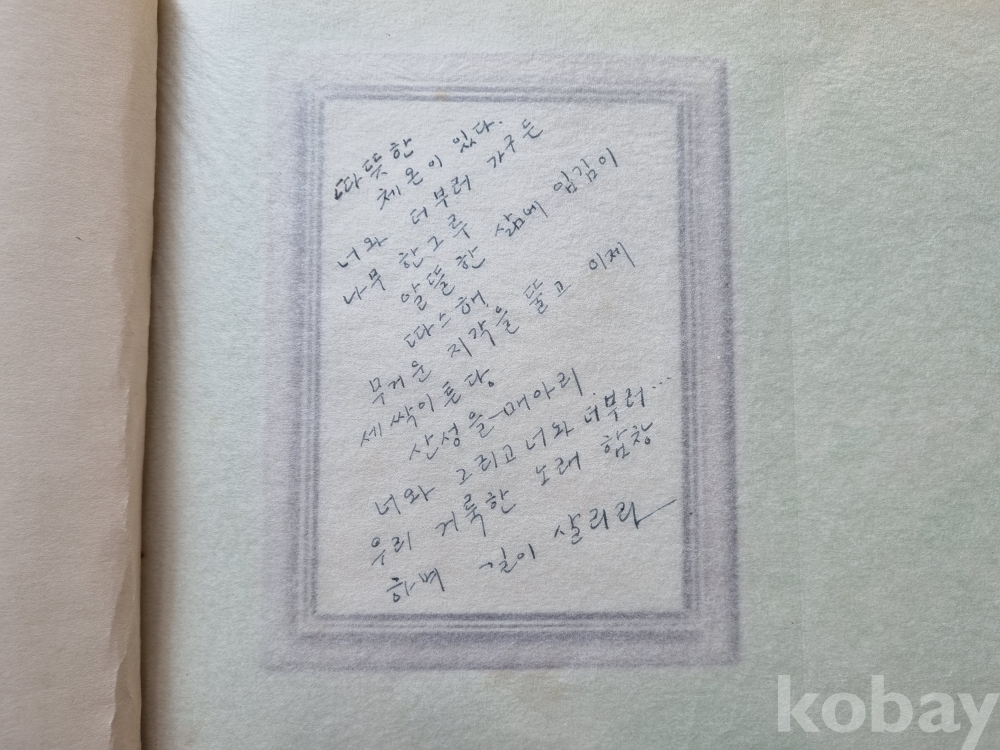 따뜻한
체온이 있다.
너와 더부러 가구는
나무 한그루
알뜰한 삶에 입김이
따스해
무거운 지각을 뚫고 이제
세싹이 튼 땅
산성을 매아리
너와 그리고 너와 더부러...
우리 거룩한 노래 함창
하며 길이 살리라
kobay